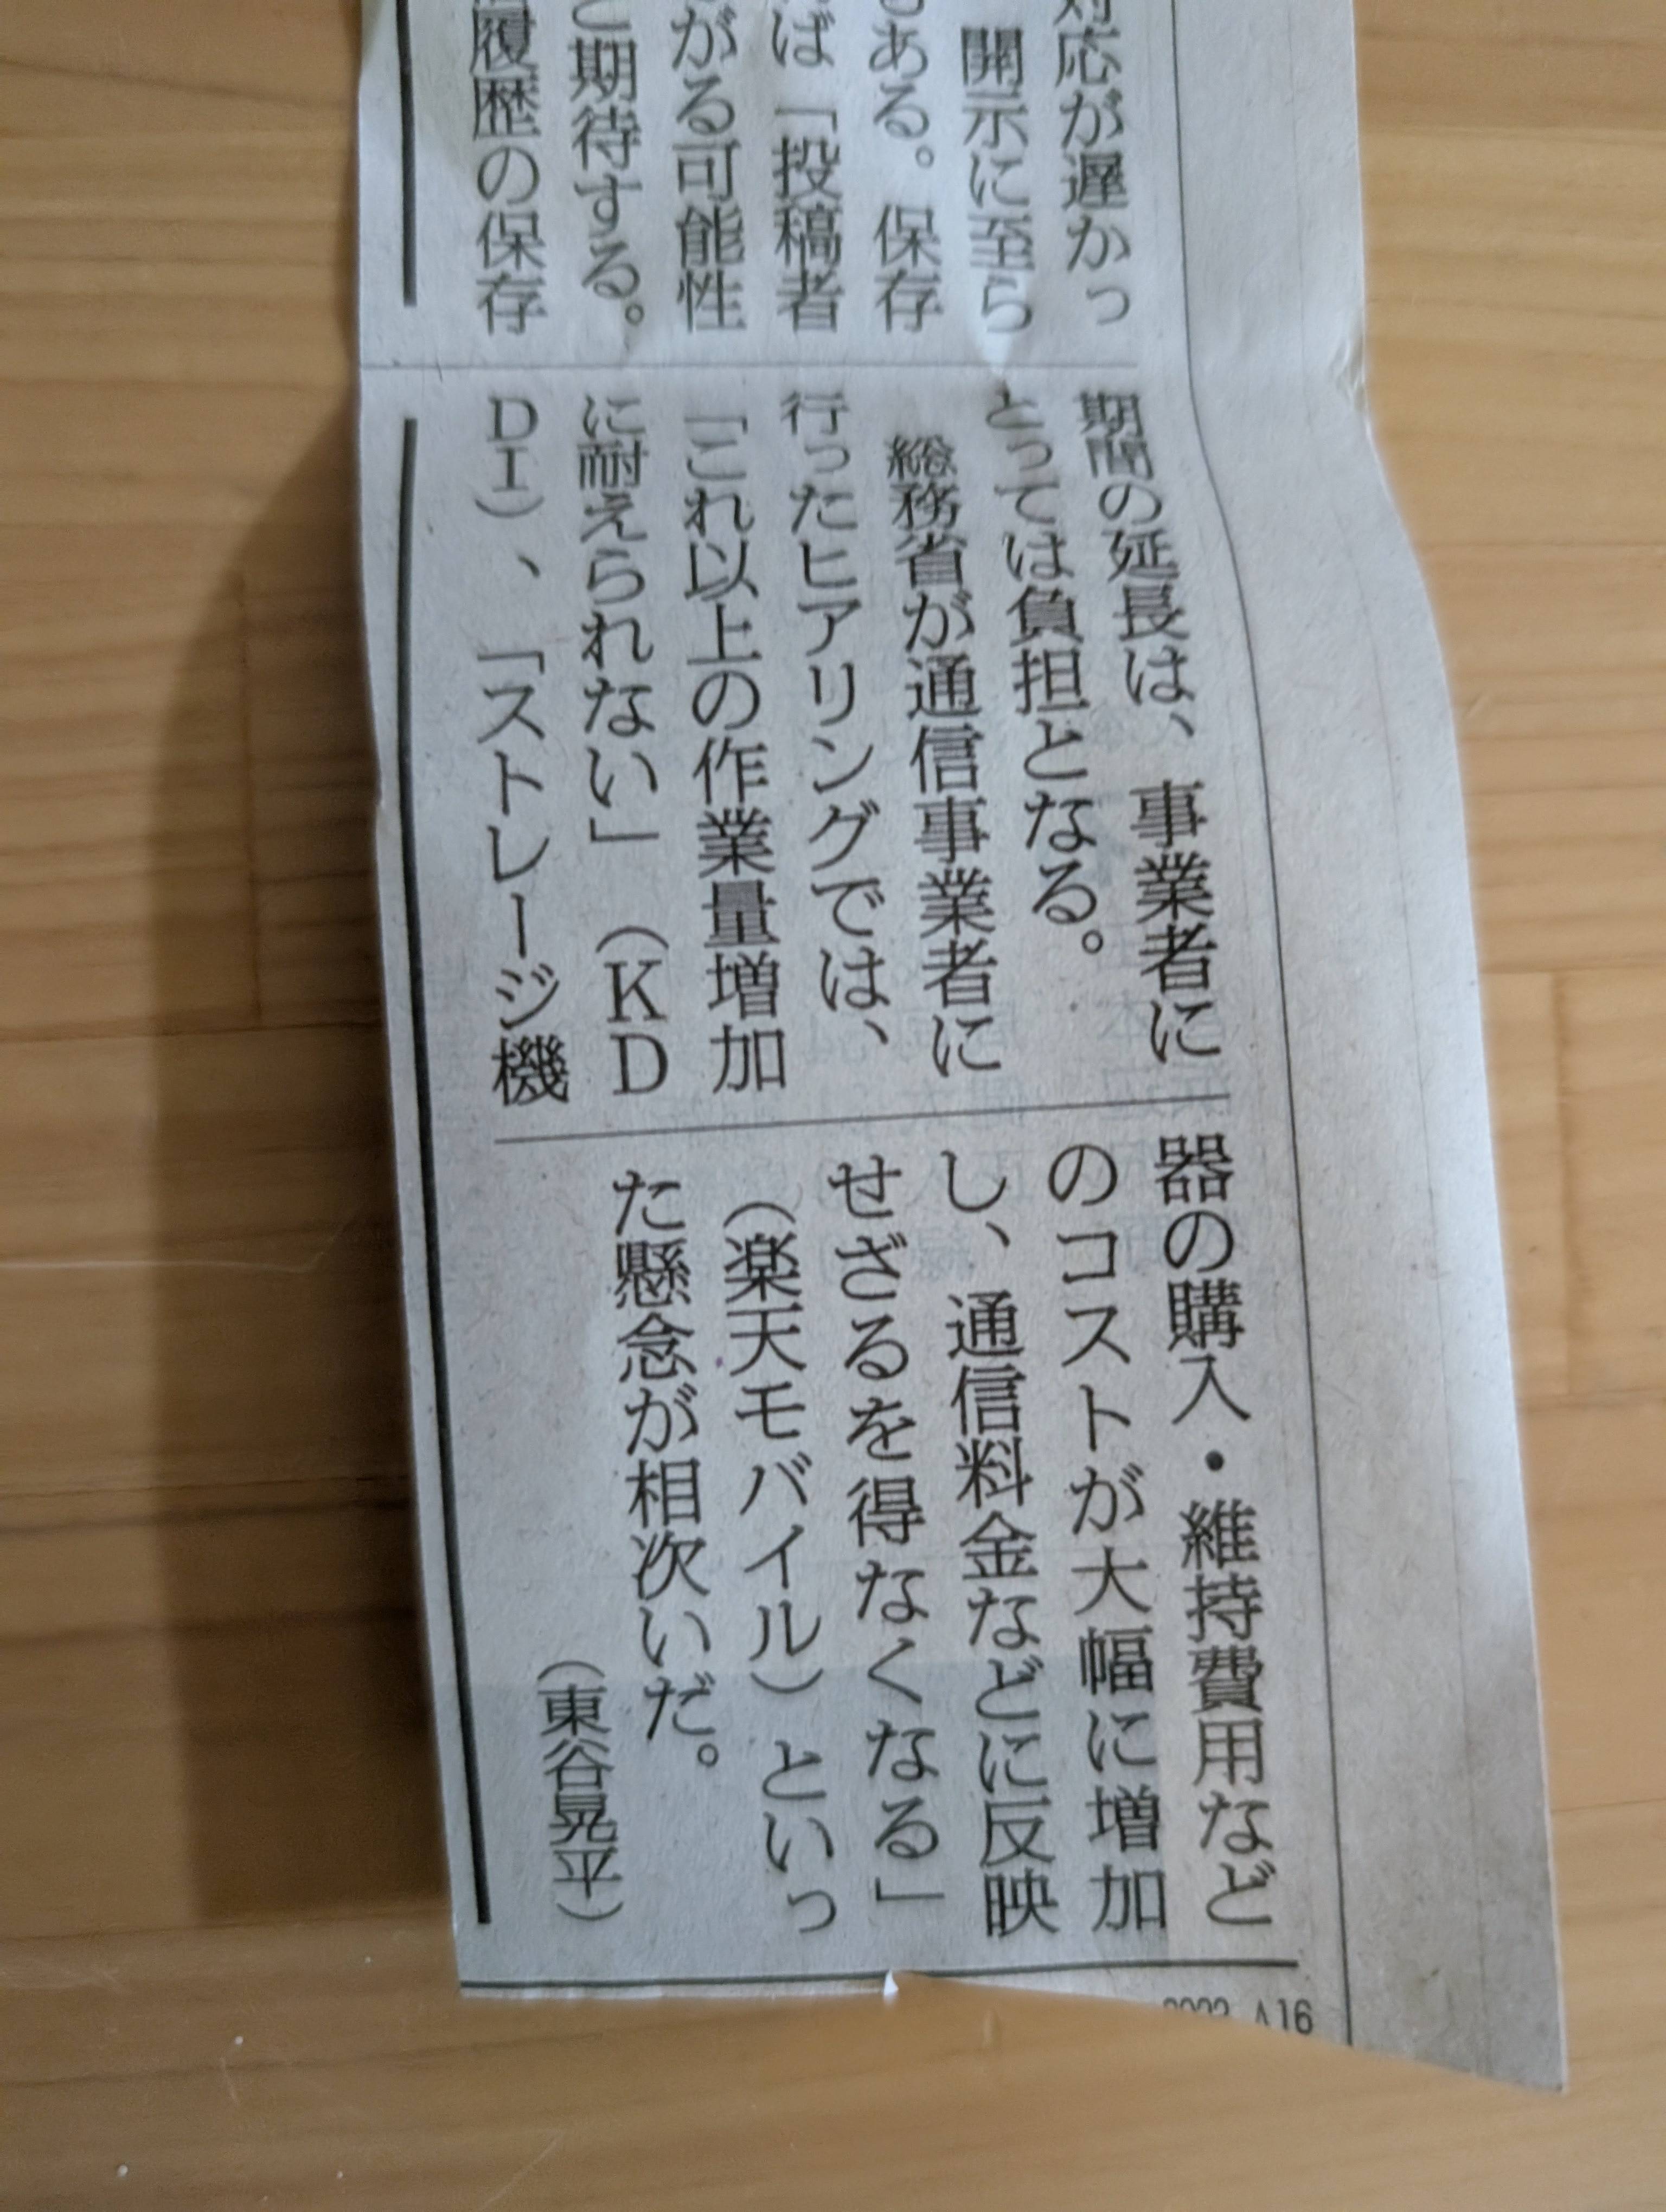 対応が遅かっ
開示に至ら
もある。保存
ば「投稿者
がる可能性
と期待する。
履歴の保存
期間の延長は、事業者に
とっては負担となる。
総務省が通信事業者に
行ったヒアリングでは、
「これ以上の作業量増加
に耐えられない」（KD
DI）、「ストレージ機
器の購入・維持費用など
のコストが大幅に増加
し、通信料金などに反映
せざるを得なくなる」
（楽天モバイル）といっ
た懸念が相次いだ。
（東谷晃平）
A16